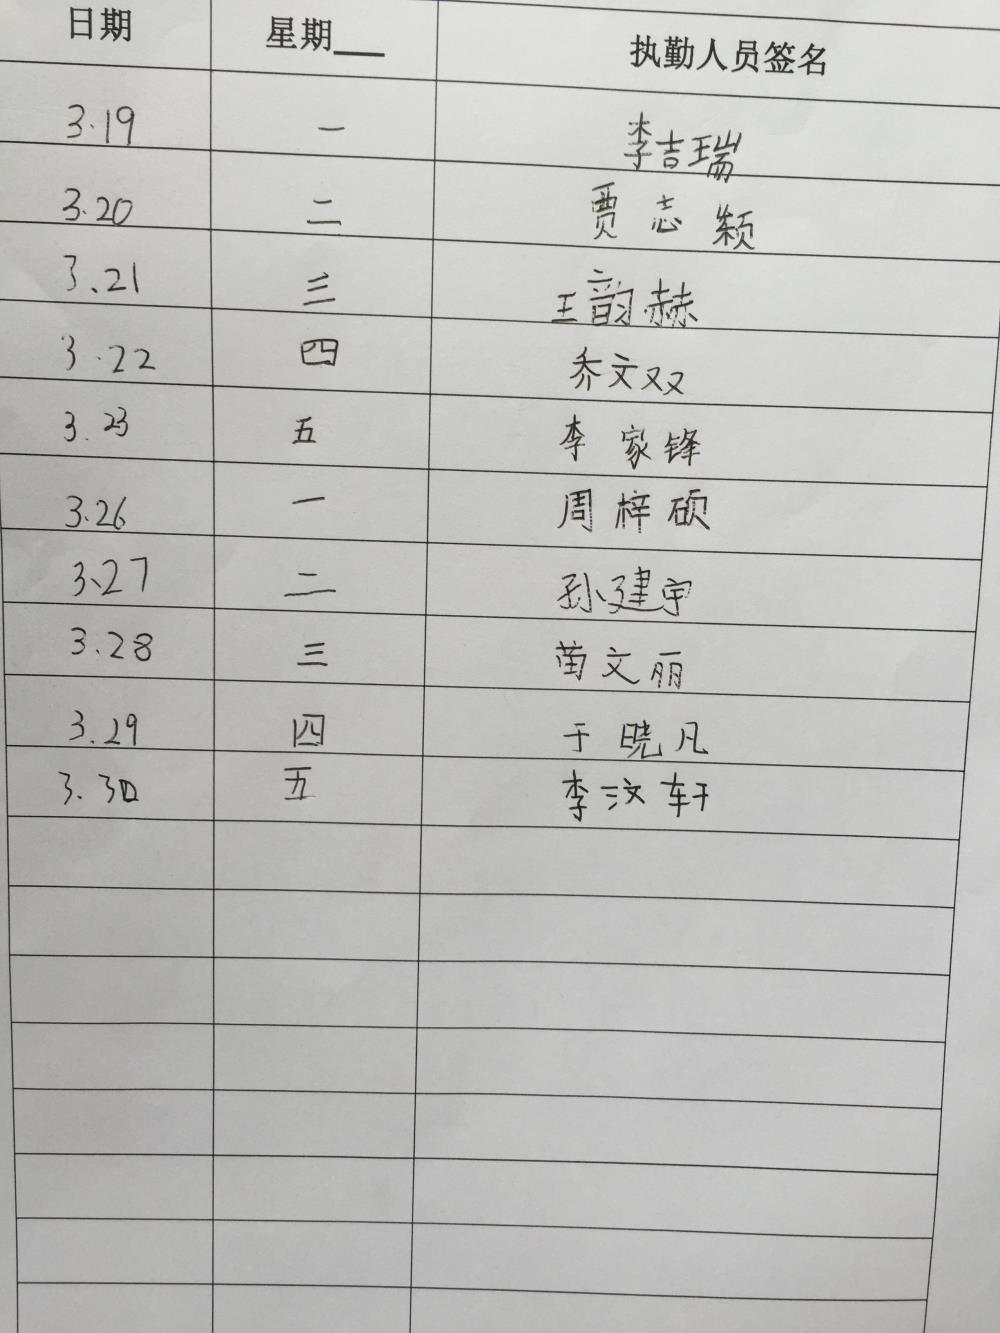 日期 星期___ 执勤人员签名
3.19 一 李吉瑞
3.20 二 贾志颖
3.21 三 王韵赫
3.22 四 乔文双
3.23 五 李家锋
3.26 一 周梓硕
3.27 二 孙建宇
3.28 三 苗文丽
3.29 四 于晓凡
3.30 五 李汶轩